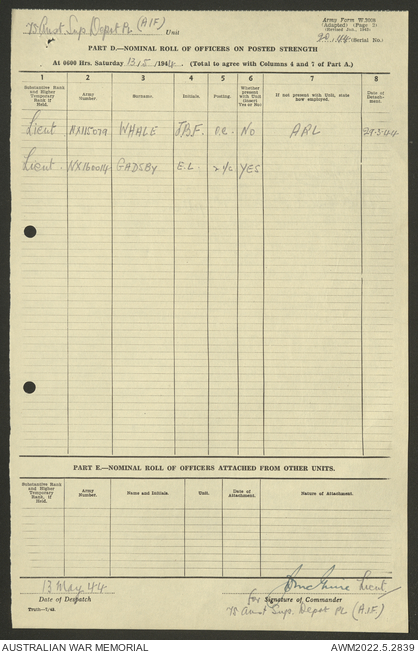 Army Form W.3008
(Adapted) (Page 2)
(Revised Jan., 1943)
Aust. Sup. Depot Pl (AIF) Unit
20/44 (Serial No.)
PART D.—NOMINAL ROLL OF OFFICERS ON POSTED STRENGTH
At 0600 Hrs. Saturday 13/5/1944. (Total to agree with Columns 4 and 7 of Part A.)
1 2 3 4 5 6 7 8
Substantive Rank and Higher Temporary Rank if Held. Army Number. Surname. Initials. Posting. Whether present with Unit (insert Yes or No) If not present with Unit, state how employed. Date of Detachment.
Lieut NX115079 WHALE J.B.F. O.C. NO ARL 29.3.44
Lieut. NX160014 GADSBY E.L. 2i/c YES
PART E.—NOMINAL ROLL OF OFFICERS ATTACHED FROM OTHER UNITS.
Substantive Rank and Higher Temporary Rank, if Held. Army Number. Name and Initials. Unit. Date of Attachment. Nature of Attachment.
13 May 44
Date of Despatch
Lieut
for Signature of Commander
Aust Sup. Depot Pl (A.I.F.)
AUSTRALIAN WAR MEMORIAL
AWM2022.5.2839